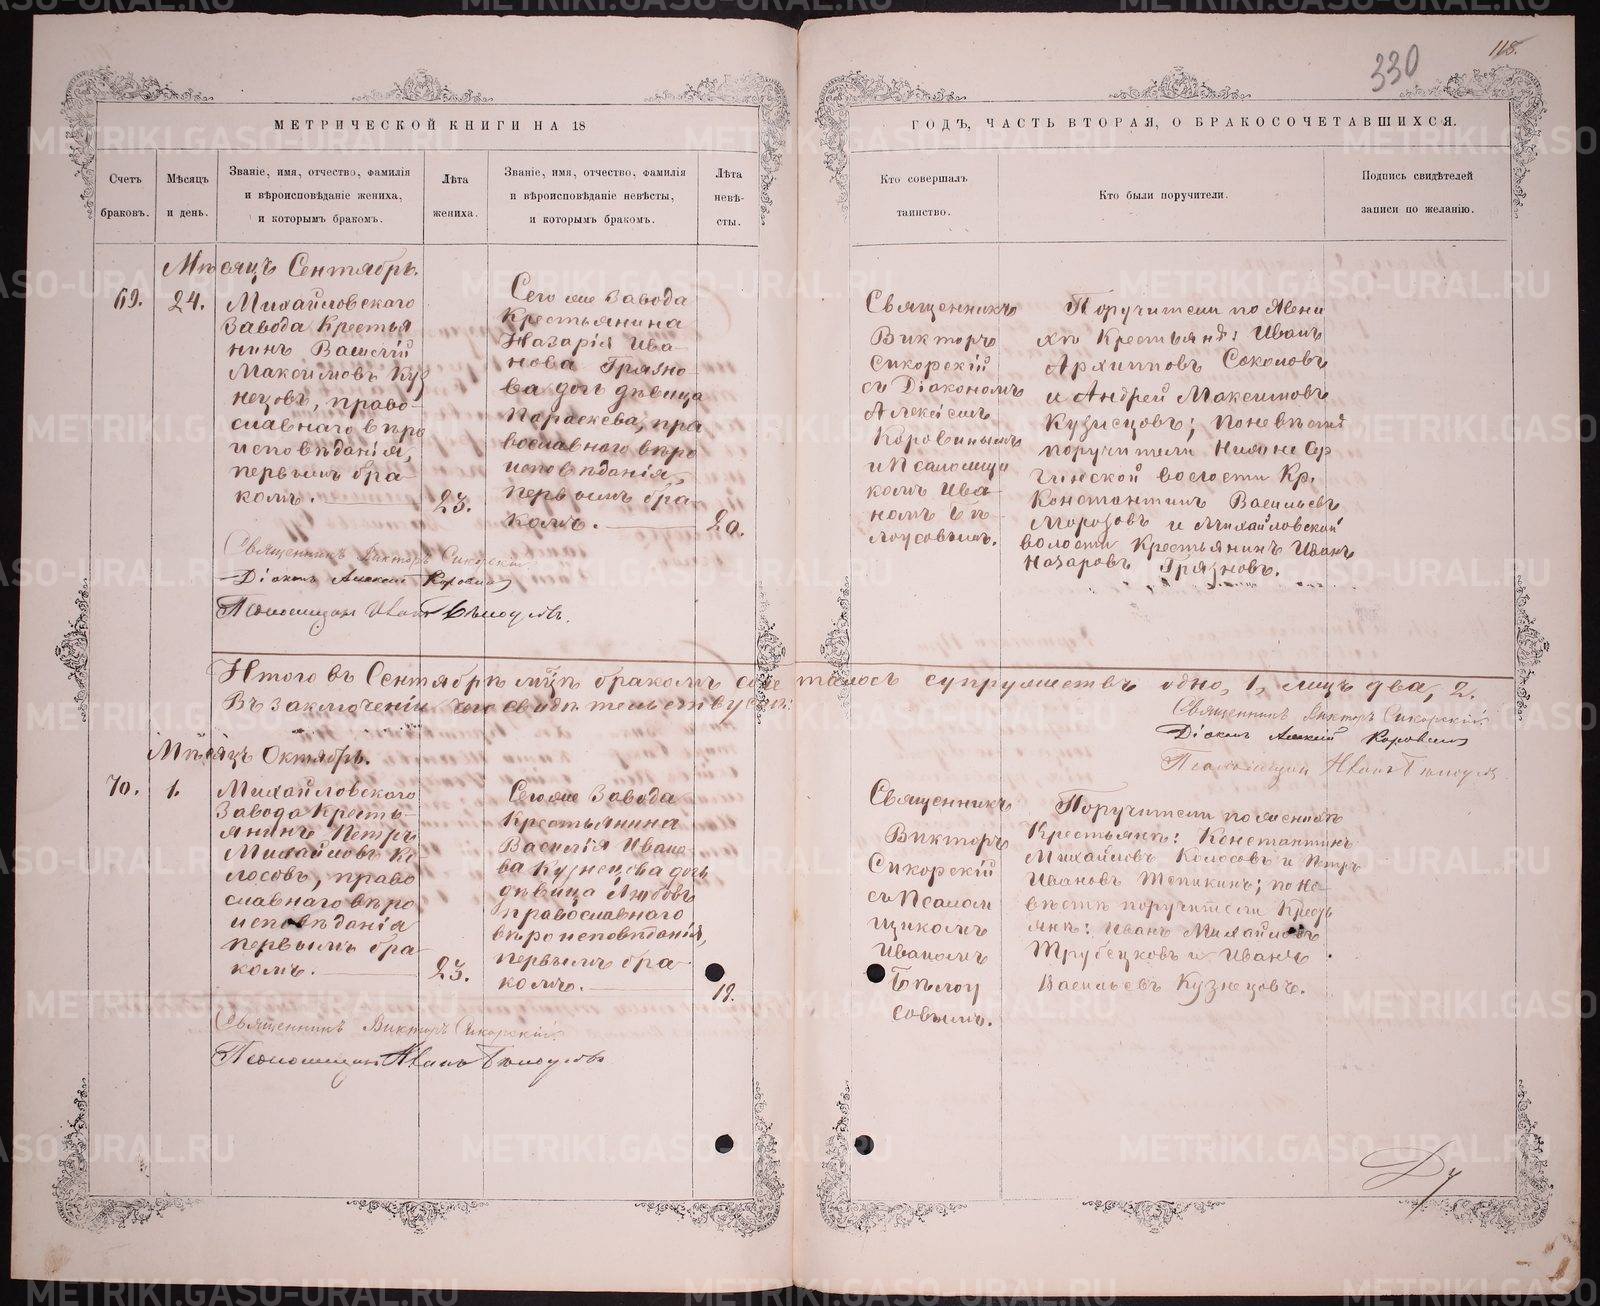 118.
330
МЕТРИЧЕСКОЙ КНИГИ НА 18
ГОДЪ, ЧАСТЬ ВТОРАЯ, О БРАКОСОЧЕТАВШИХСЯ.
Счетъ
браковъ.
Мѣсяцъ
и день.
Званіе, имя, отчество, фамилія
и вѣроисповѣданіе жениха,
и которымъ бракомъ.
Лѣта
жениха.
Званіе, имя, отчество, фамилія
и вѣроисповѣданіе невѣсты,
и которымъ бракомъ.
Лѣта
невѣ-
сты.
Кто совершалъ
таинство.
Кто были поручители.
Подпись свидѣтелей
записи по желанію.
Мѣсяцъ Сентябрь.
69.
24.
Михайловскаго
завода Крестья
нинъ Василій
Максимовъ Куз
нецовъ, право-
славнаго вѣро
исповѣданія,
первымъ бра-
комъ.
23.
Сего же завода
Крестьянина
Назарія Ива-
нова Грязно-
ва дочь дѣвица
Параскева, пра
вославнаго вѣро
исповѣданія,
первымъ бра-
комъ.
20.
Священникъ
Викторъ
Сикорскій
съ Діакономъ
Алексіемъ
Коровинымъ
и Псаломщи
комъ Ива-
номъ Бѣ-
лоусовымъ.
Поручители по жени
хѣ Крестьяне: Иванъ
Архиповъ Соколовъ
и Андрей Максимовъ
Кузнецовъ; по невѣстѣ
поручители Нижне Сер
гинской волости Кр.
Константинъ Васильевъ
Морозовъ и Михайловской
волости Крестьянинъ Иванъ
Назаровъ Грязновъ.
Священникъ Викторъ Сикорскій
Діаконъ Алексій Коровинъ
Псаломщикъ Иванъ Бѣлоусовъ.
Итого въ Сентябрѣ мѣсяцѣ бракомъ сочеталось супружествъ одно, 1, лицъ два, 2.
Въ заключеніи чего свидѣтельствуемъ:
Священникъ Викторъ Сикорскій
Діаконъ Алексій Коровинъ
Псаломщикъ Иванъ Бѣлоусовъ
Мѣсяцъ Октябрь.
70.
1.
Михайловскаго
Завода Кресть-
янинъ Петръ
Михайловъ Ко-
лосовъ, право
славнаго вѣро
исповѣданія
первымъ бра-
комъ.
23.
Сего же завода
Крестьянина
Василія Ивано-
ва Кузнецова дочь
дѣвица Любовь
православнаго
вѣроисповѣданія,
первымъ бра-
комъ.
19.
Священникъ
Викторъ
Сикорскій
съ Псалом
щикомъ
Иваномъ
Бѣлоу
совымъ.
Поручители по женихѣ
Крестьяне: Константинъ
Михайловъ Колосовъ и Петръ
Ивановъ Тепикинъ; по не-
вѣстѣ поручители Кресть
яне: Иванъ Михайловъ
Трубецковъ и Иванъ
Васильевъ Кузнецовъ.
Священникъ Викторъ Сикорскій
Псаломщикъ Иванъ Бѣлоусовъ
METRIKI.GASO-URAL.RU